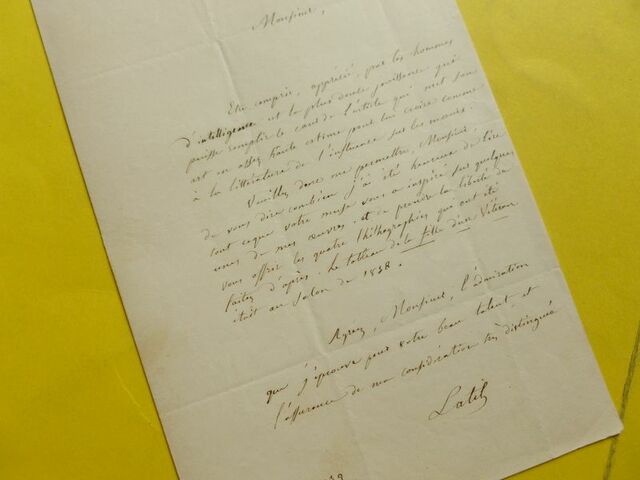 Monsieur,
Etre compris, apprécié, par les hommes
d'intelligence est la plus douce jouissance qui
puisse remplir le cœur de l'artiste qui met son
art en assez haute estime pour lui croire comme
à la littérature de l'influence sur les mœurs.
Veuillez donc me permettre, Monsieur,
de vous dire combien j'ai été heureux de lire
tout ce que votre muse vous a inspiré sur quelques
unes de mes œuvres et de prendre la liberté de
vous offrir les quatre lithographies qui ont été
faites d'après. Le tableau de la fille d'un Vétéran
était au Salon de 1838.
Agréez, Monsieur, l'admiration
que j'éprouve pour votre beau talent, et
l'assurance de ma considération très distinguée
Latil